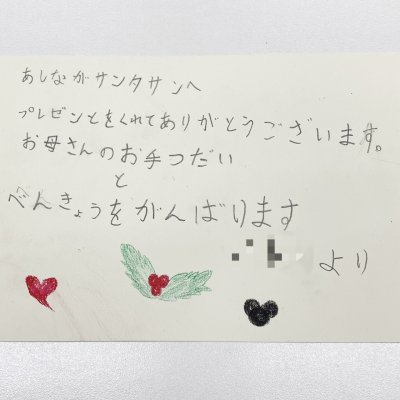 あしながサンタサンへ
プレゼントをくれてありがとうございます。
お母さんのお手つだい
と
べんきょうをがんばります
より